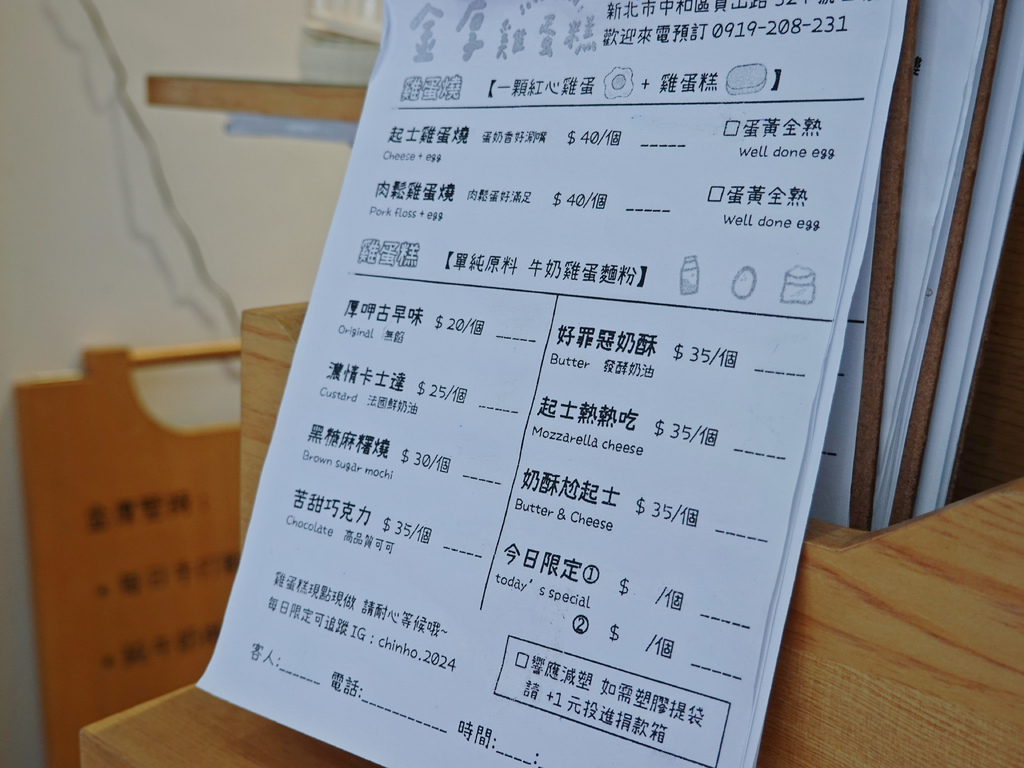 金厚雞蛋糕
新北市中和區員山路
歡迎來電預訂 0919-208-231
雞蛋燒 【一顆紅心雞蛋 + 雞蛋糕 】
起士雞蛋燒 蛋奶香好涮嘴 $ 40/個 _____ □蛋黃全熟
Cheese + egg Well done egg
肉鬆雞蛋燒 肉鬆蛋好滿足 $ 40/個 _____ □蛋黃全熟
Pork floss + egg Well done egg
雞蛋糕 【單純原料 牛奶雞蛋麵粉】
厚呷古早味 $ 20/個 _____
Original 無餡
濃情卡士達 $ 25/個 _____
Custard 法國鮮奶油
黑糖麻糬燒 $ 30/個 _____
Brown sugar mochi
苦甜巧克力 $ 35/個 _____
Chocolate 高品質可可
好罪惡奶酥 $ 35/個 _____
Butter 發酵奶油
起士熱熱吃 $ 35/個 _____
Mozzarella cheese
奶酥尬起士 $ 35/個 _____
Butter & Cheese
今日限定① $ /個 _____
today's special
② $ /個 _____
雞蛋糕現點現做 請耐心等候哦~
每日限定可追蹤 IG : chinho.2024
□響應減塑 如需塑膠提袋
請 +1 元投進捐款箱
客人:______ 電話:____________ 時間:____:_